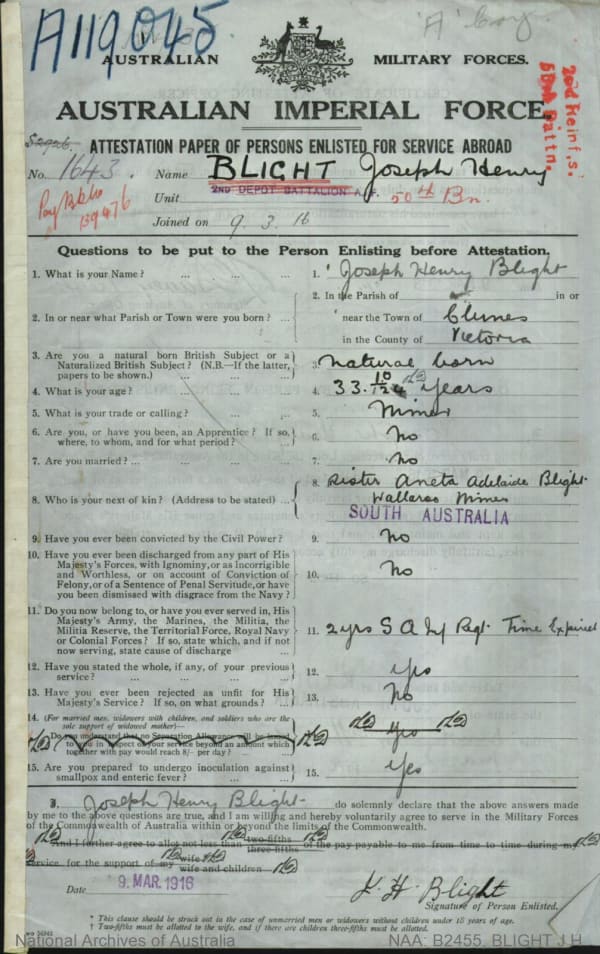 A119045.
'A' Coy.
AUSTRALIAN MILITARY FORCES.
AUSTRALIAN IMPERIAL FORCE.
2nd Reinf.s.
Battn.
ATTESTATION PAPER OF PERSONS ENLISTED FOR SERVICE ABROAD
No. 1643. Name BLIGHT Joseph Henry
Unit 2ND DEPOT BATTALION A.I.F. 50th Bn.
Joined on 9.3.16
Questions to be put to the Person Enlisting before Attestation.
1. What is your Name? ... ... ... 1. Joseph Henry Blight
2. In or near what Parish or Town were you born? ... 2. In the Parish of in or
near the Town of Clunes
in the County of Victoria
3. Are you a natural born British Subject or a
Naturalized British Subject? (N.B.—If the latter,
papers to be shown.) ... ... 3. natural born
4. What is your age? ... ... ... 4. 33 10/12 years
5. What is your trade or calling? ... ... 5. Miner
6. Are you, or have you been, an Apprentice? If so,
where, to whom, and for what period? ... 6. No
7. Are you married? ... ... ... ... 7. No
8. Who is your next of kin? (Address to be stated) ... 8. Sister Aneta Adelaide Blight
Wallaroo Mines
SOUTH AUSTRALIA
9. Have you ever been convicted by the Civil Power? 9. No
10. Have you ever been discharged from any part of His
Majesty's Forces, with Ignominy, or as Incorrigible
and Worthless, or on account of Conviction of
Felony, or of a Sentence of Penal Servitude, or have
you been dismissed with disgrace from the Navy? 10. No
11. Do you now belong to, or have you ever served in, His
Majesty's Army, the Marines, the Militia, the
Militia Reserve, the Territorial Force, Royal Navy
or Colonial Forces? If so, state which, and if not
now serving, state cause of discharge ... 11. 2 yrs S A Inf Regt. Time Expired
12. Have you stated the whole, if any, of your previous
service? ... ... ... ... 12. yes
13. Have you ever been rejected as unfit for His
Majesty's Service? If so, on what grounds? ... 13. No
14. (For married men, widowers with children, and soldiers who are the
sole support of widowed mother)—
Do you understand that no Separation Allowance will be issued
to you in respect of your service beyond an amount which
together with pay would reach 8/- per day? ... Yes
15. Are you prepared to undergo inoculation against
smallpox and enteric fever? ... ... 15. Yes
I, Joseph Henry Blight do solemnly declare that the above answers made
by me to the above questions are true, and I am willing and hereby voluntarily agree to serve in the Military Forces
of the Commonwealth of Australia within or beyond the limits of the Commonwealth.
And I further agree to allot not less than two-fifths three-fifths of the pay payable to me from time to time during my
service for the support of my wife wife and children
Date 9. MAR. 1916 J. H. Blight
Signature of Person Enlisted.
* This clause should be struck out in the case of unmarried men or widowers without children under 18 years of age.
† Two-fifths must be allotted to the wife, and if there are children three-fifths must be allotted.
National Archives of Australia NAA: B2455, BLIGHT J H